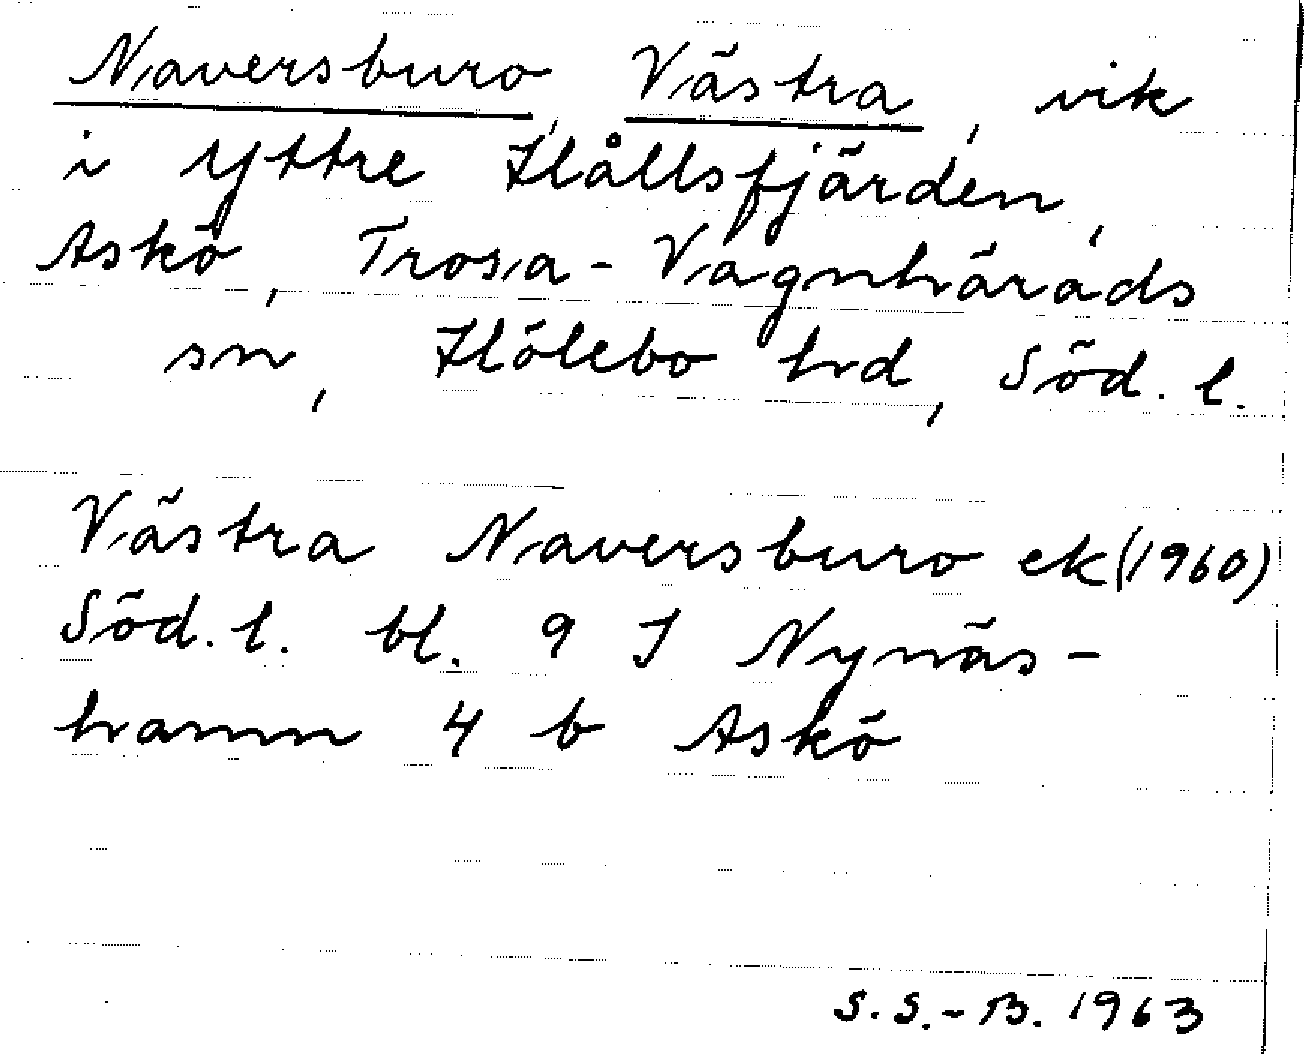 Naversburo, Västra, vik
i yttre Hållsfjärden,
Askö, Trosa-Vagnhärads
sn, Hölebo hrd, Söd. l.
Västra Naversburo ek (1960)
Söd. l. bl. 9 I Nynäs-
hamn 4 b Askö
S. S.-B. 1963